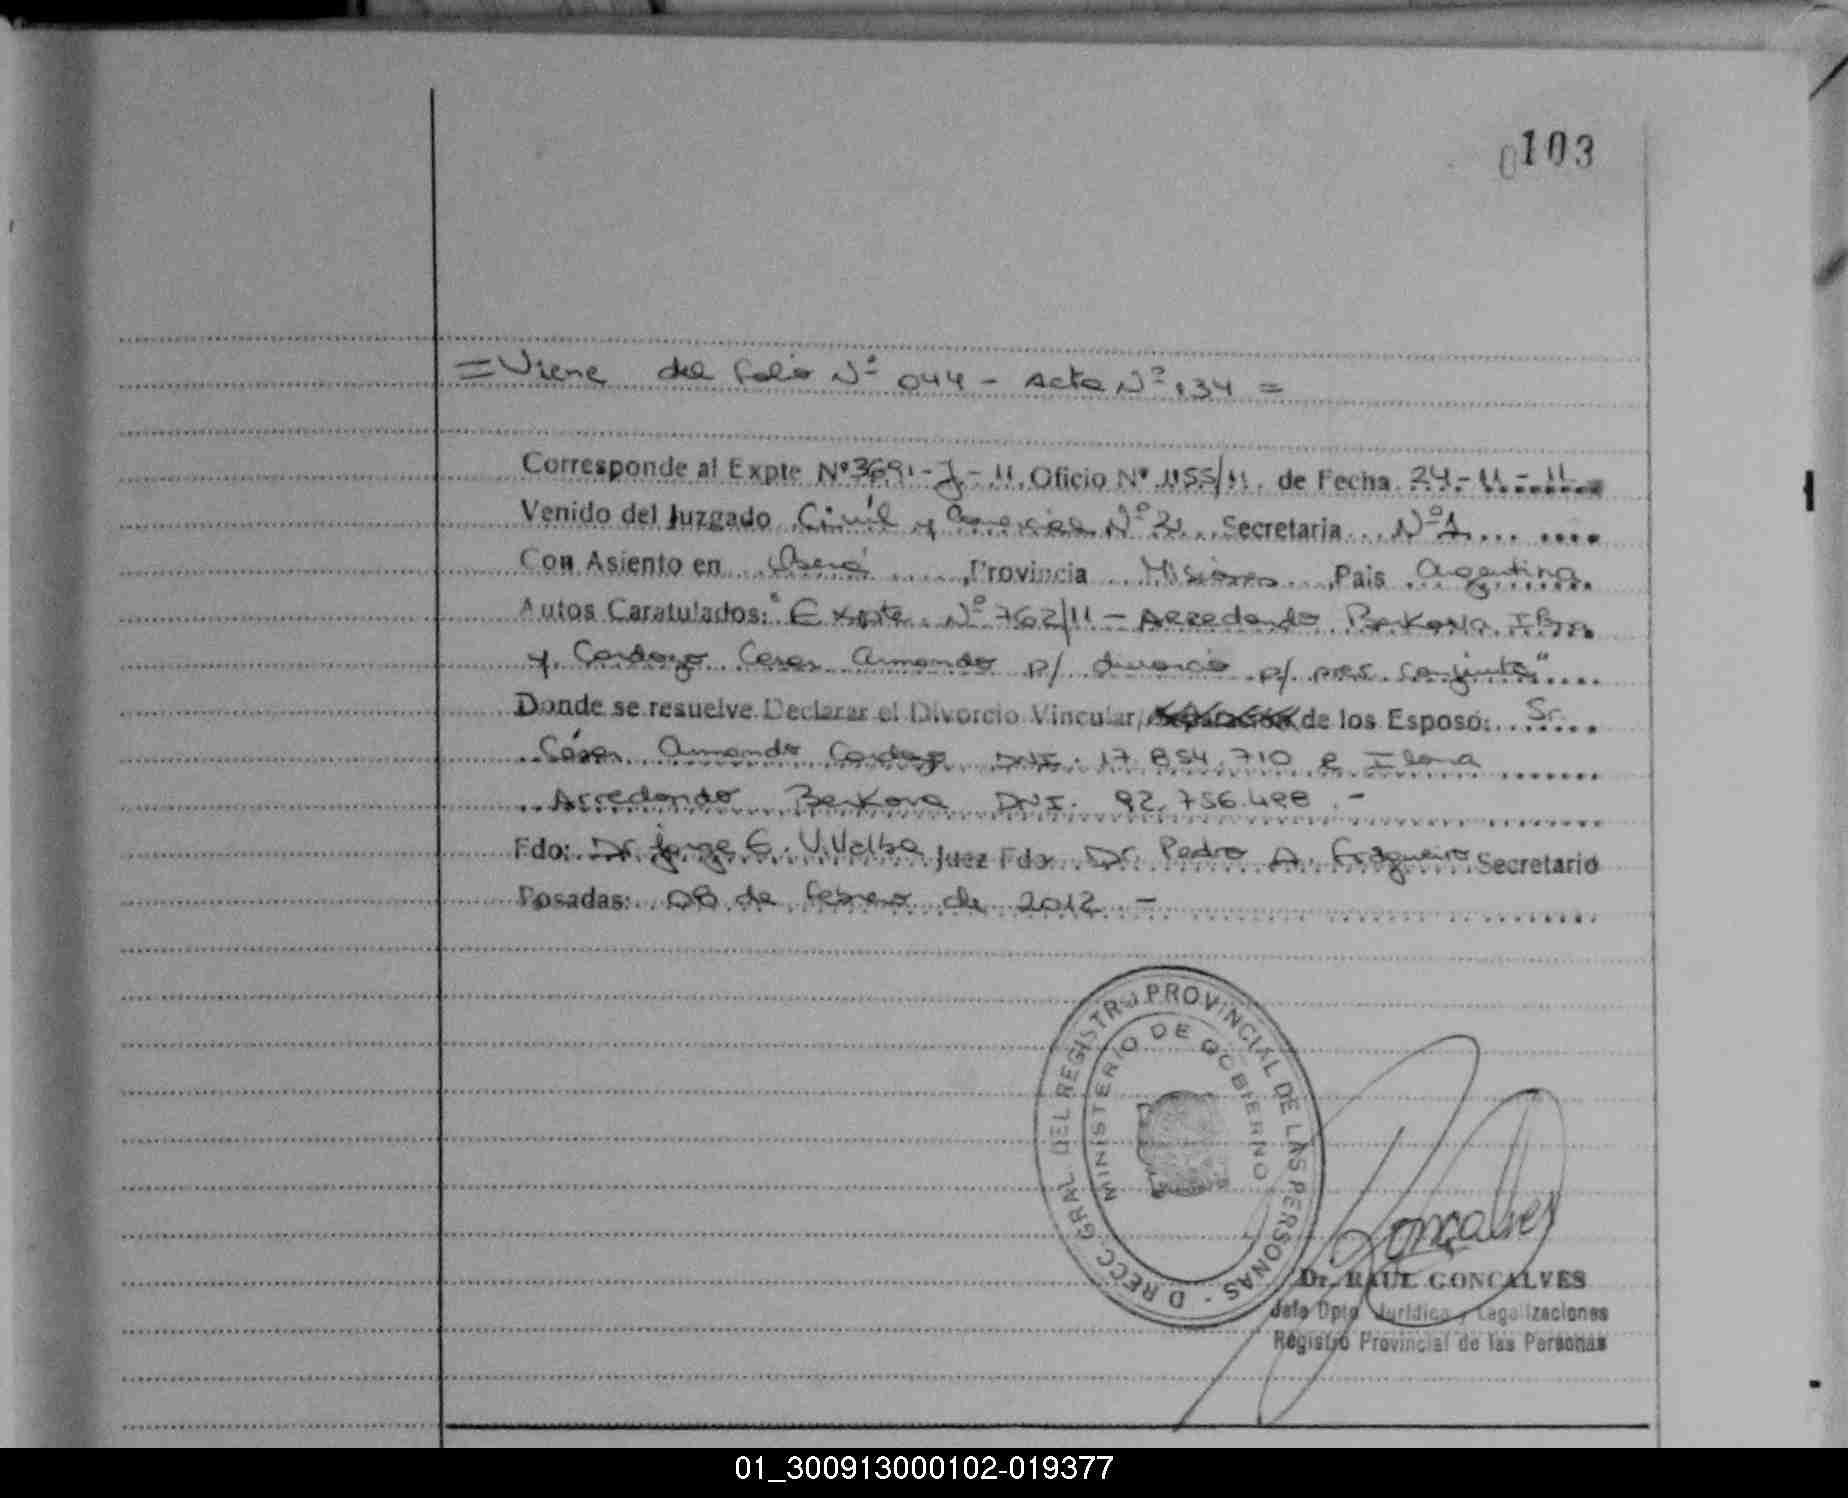 0103
= Viene del folio Nº 044 - Acta Nº 134 =
Corresponde al Expte Nº 3691-J-11. Oficio Nº 1155/11. de Fecha 24-11-11
Venido del Juzgado Civil y Comercial Nº 2. Secretaria Nº 1
Con Asiento en Oberá, Provincia Misiones, Pais Argentina
Autos Caratulados: "Expte. Nº 762/11 - Arredondo Berkova
y Cardozo Cesar Armando p/ divorcio p/ pres. conjunta"
Donde se resuelve Declarar el Divorcio Vincular, de los Esposo: Sr.
César Armando Cardozo DNI. 17.854.710 e Ilona
Arredondo Berkova DNI. 92.756.498.-
Fdo: Dr. Jorge E. Villalba Juez Fdo: Dr. Pedro A. Fragueiro Secretario
Posadas: 08 de febrero de 2012 -
DIRECC. GRAL. DEL REGISTRO PROVINCIAL DE LAS PERSONAS -
MINISTERIO DE GOBIERNO
Goncalves
Dr. RAUL GONCALVES
Jefe Dpto. Jurídico y Legalizaciones
Registro Provincial de las Personas
01_300913000102-019377